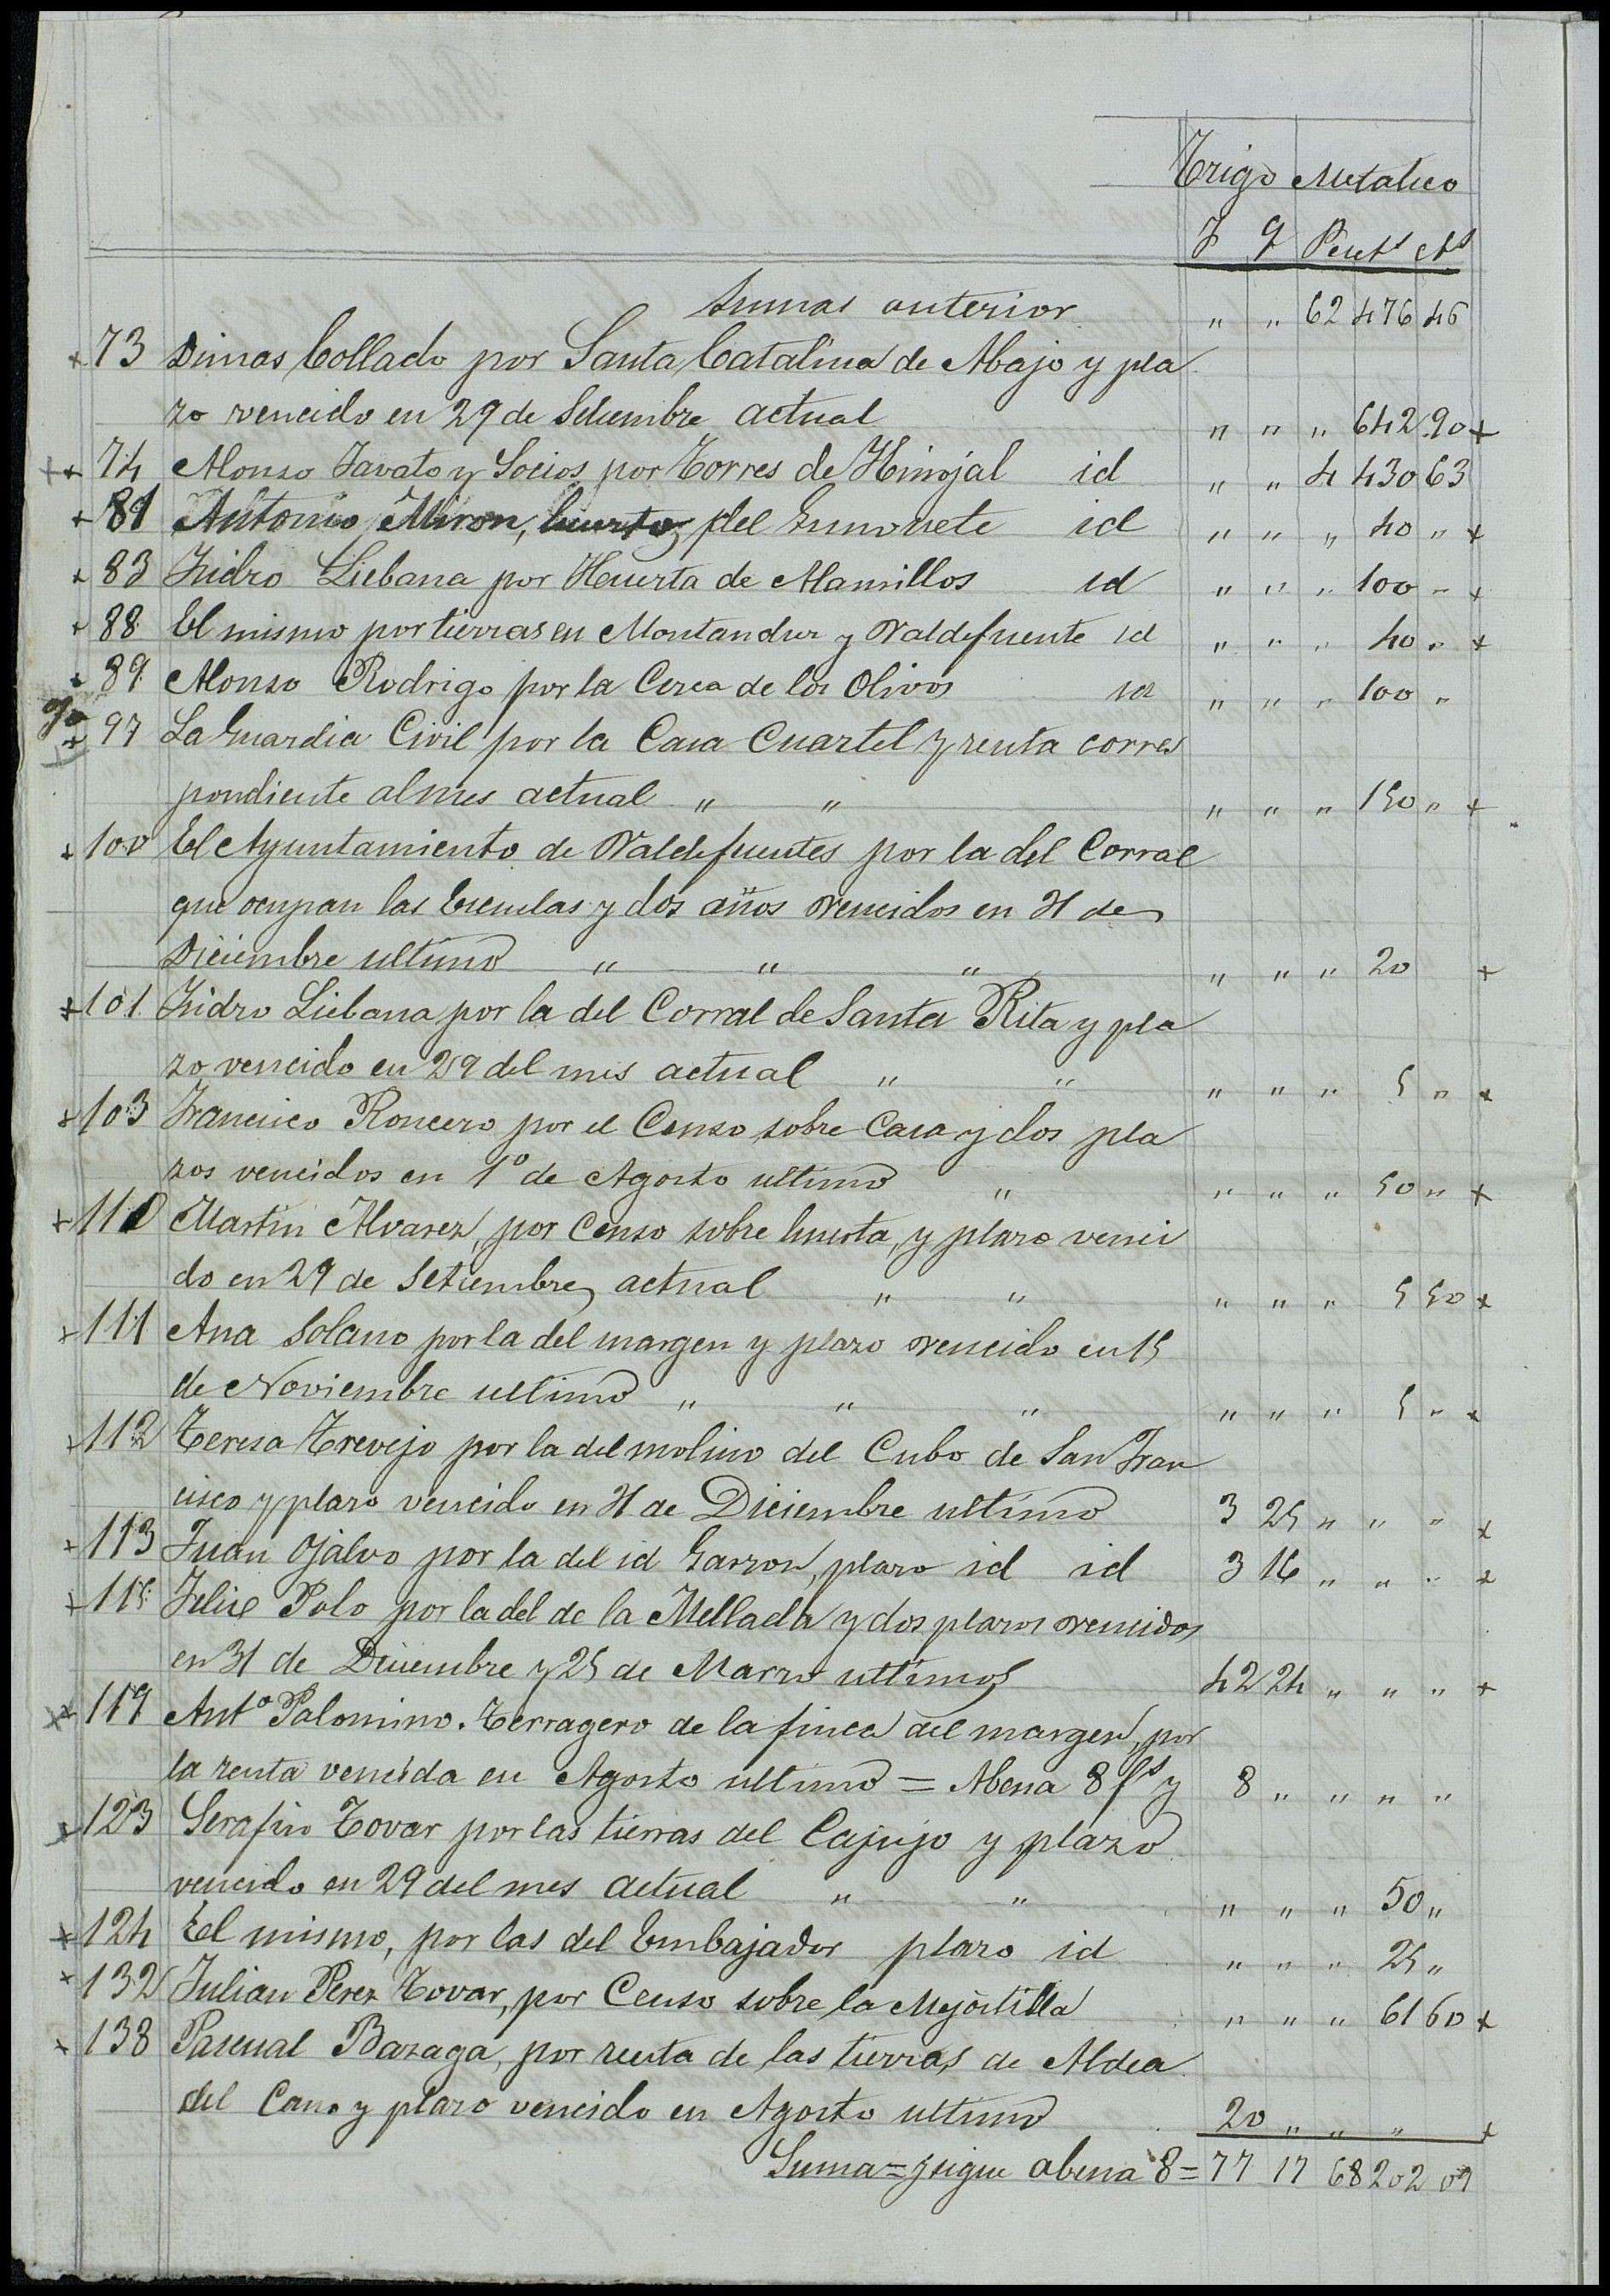 Trigo Metalico
F q Peset.s Cts
Sumas anterior " " 62 476 46
73 Dimas Collado por Santa Catalina de Abajo y pla
zo vencido en 29 de Setiembre actual " " " 642 90 +
74 Alonso Tavato y Socios por Torres de Hinojal id " " 4 430 63
81 Antonio Miron, huerto del Gunonete id " " " 40 " +
83 Isidro Liebana por Huerta de Alamillos id " " " 100 " +
88 El mismo por tierras en Montandur y Valdefuente id " " " 40 " +
89 Alonso Rodrigo por la Cerca de los Olivos id " " " 100 "
97 La Guardia Civil por la Casa Cuartel y renta corres
pondiente al mes actual " " " " " 150 " +
100 El Ayuntamiento de Valdefuentes por la del Corral
que ocupan las Escuelas y dos años vencidos en 31 de
Diciembre ultimo " " " " " " 20 +
101 Isidro Liebana por la del Corral de Santa Rita y pla
zo vencido en 29 del mes actual " " " " " 5 " +
103 Francisco Roncero por el Censo sobre Casa y dos pla
zos vencidos en 1º de Agosto ultimo " " " " 50 " +
110 Martin Alvarez, por Censo sobre huerta, y plazo venci
do en 29 de Setiembre actual " " " " " 5 50 +
111 Ana Solano por la del margen y plazo vencido en 15
de Noviembre ultimo " " " " " " 5 " +
112 Teresa Trevejo por la del molino del Cubo de San Fran
cisco y plazo vencido en 31 de Diciembre ultimo 3 25 " " " +
113 Juan Ojalvo por la del id Garzon, plazo id id 3 16 " " " +
115 Felix Polo por la del de la Mellada y dos plazos vencidos
en 31 de Diciembre y 25 de Marzo ultimos 42 24 " " " +
119 Antº Palomino. Terragero de la finca del margen, por
la renta vencida en Agosto ultimo = Abena 8 f.s y 8 " " " "
123 Serafin Tovar por las tierras del Cajujo y plazo
vencido en 29 del mes actual " " " " " 50 "
124 El mismo, por las del Embajador plazo id " " " 25 "
132 Julian Perez Tovar, por Censo sobre la Mejostilla " " " 61 60 +
138 Pascual Bazaga, por renta de las tierras de Aldea
del Cano y plazo vencido en Agosto ultimo 20 " " " +
Suma = y sigue abena 8 = 77 17 68 202 09